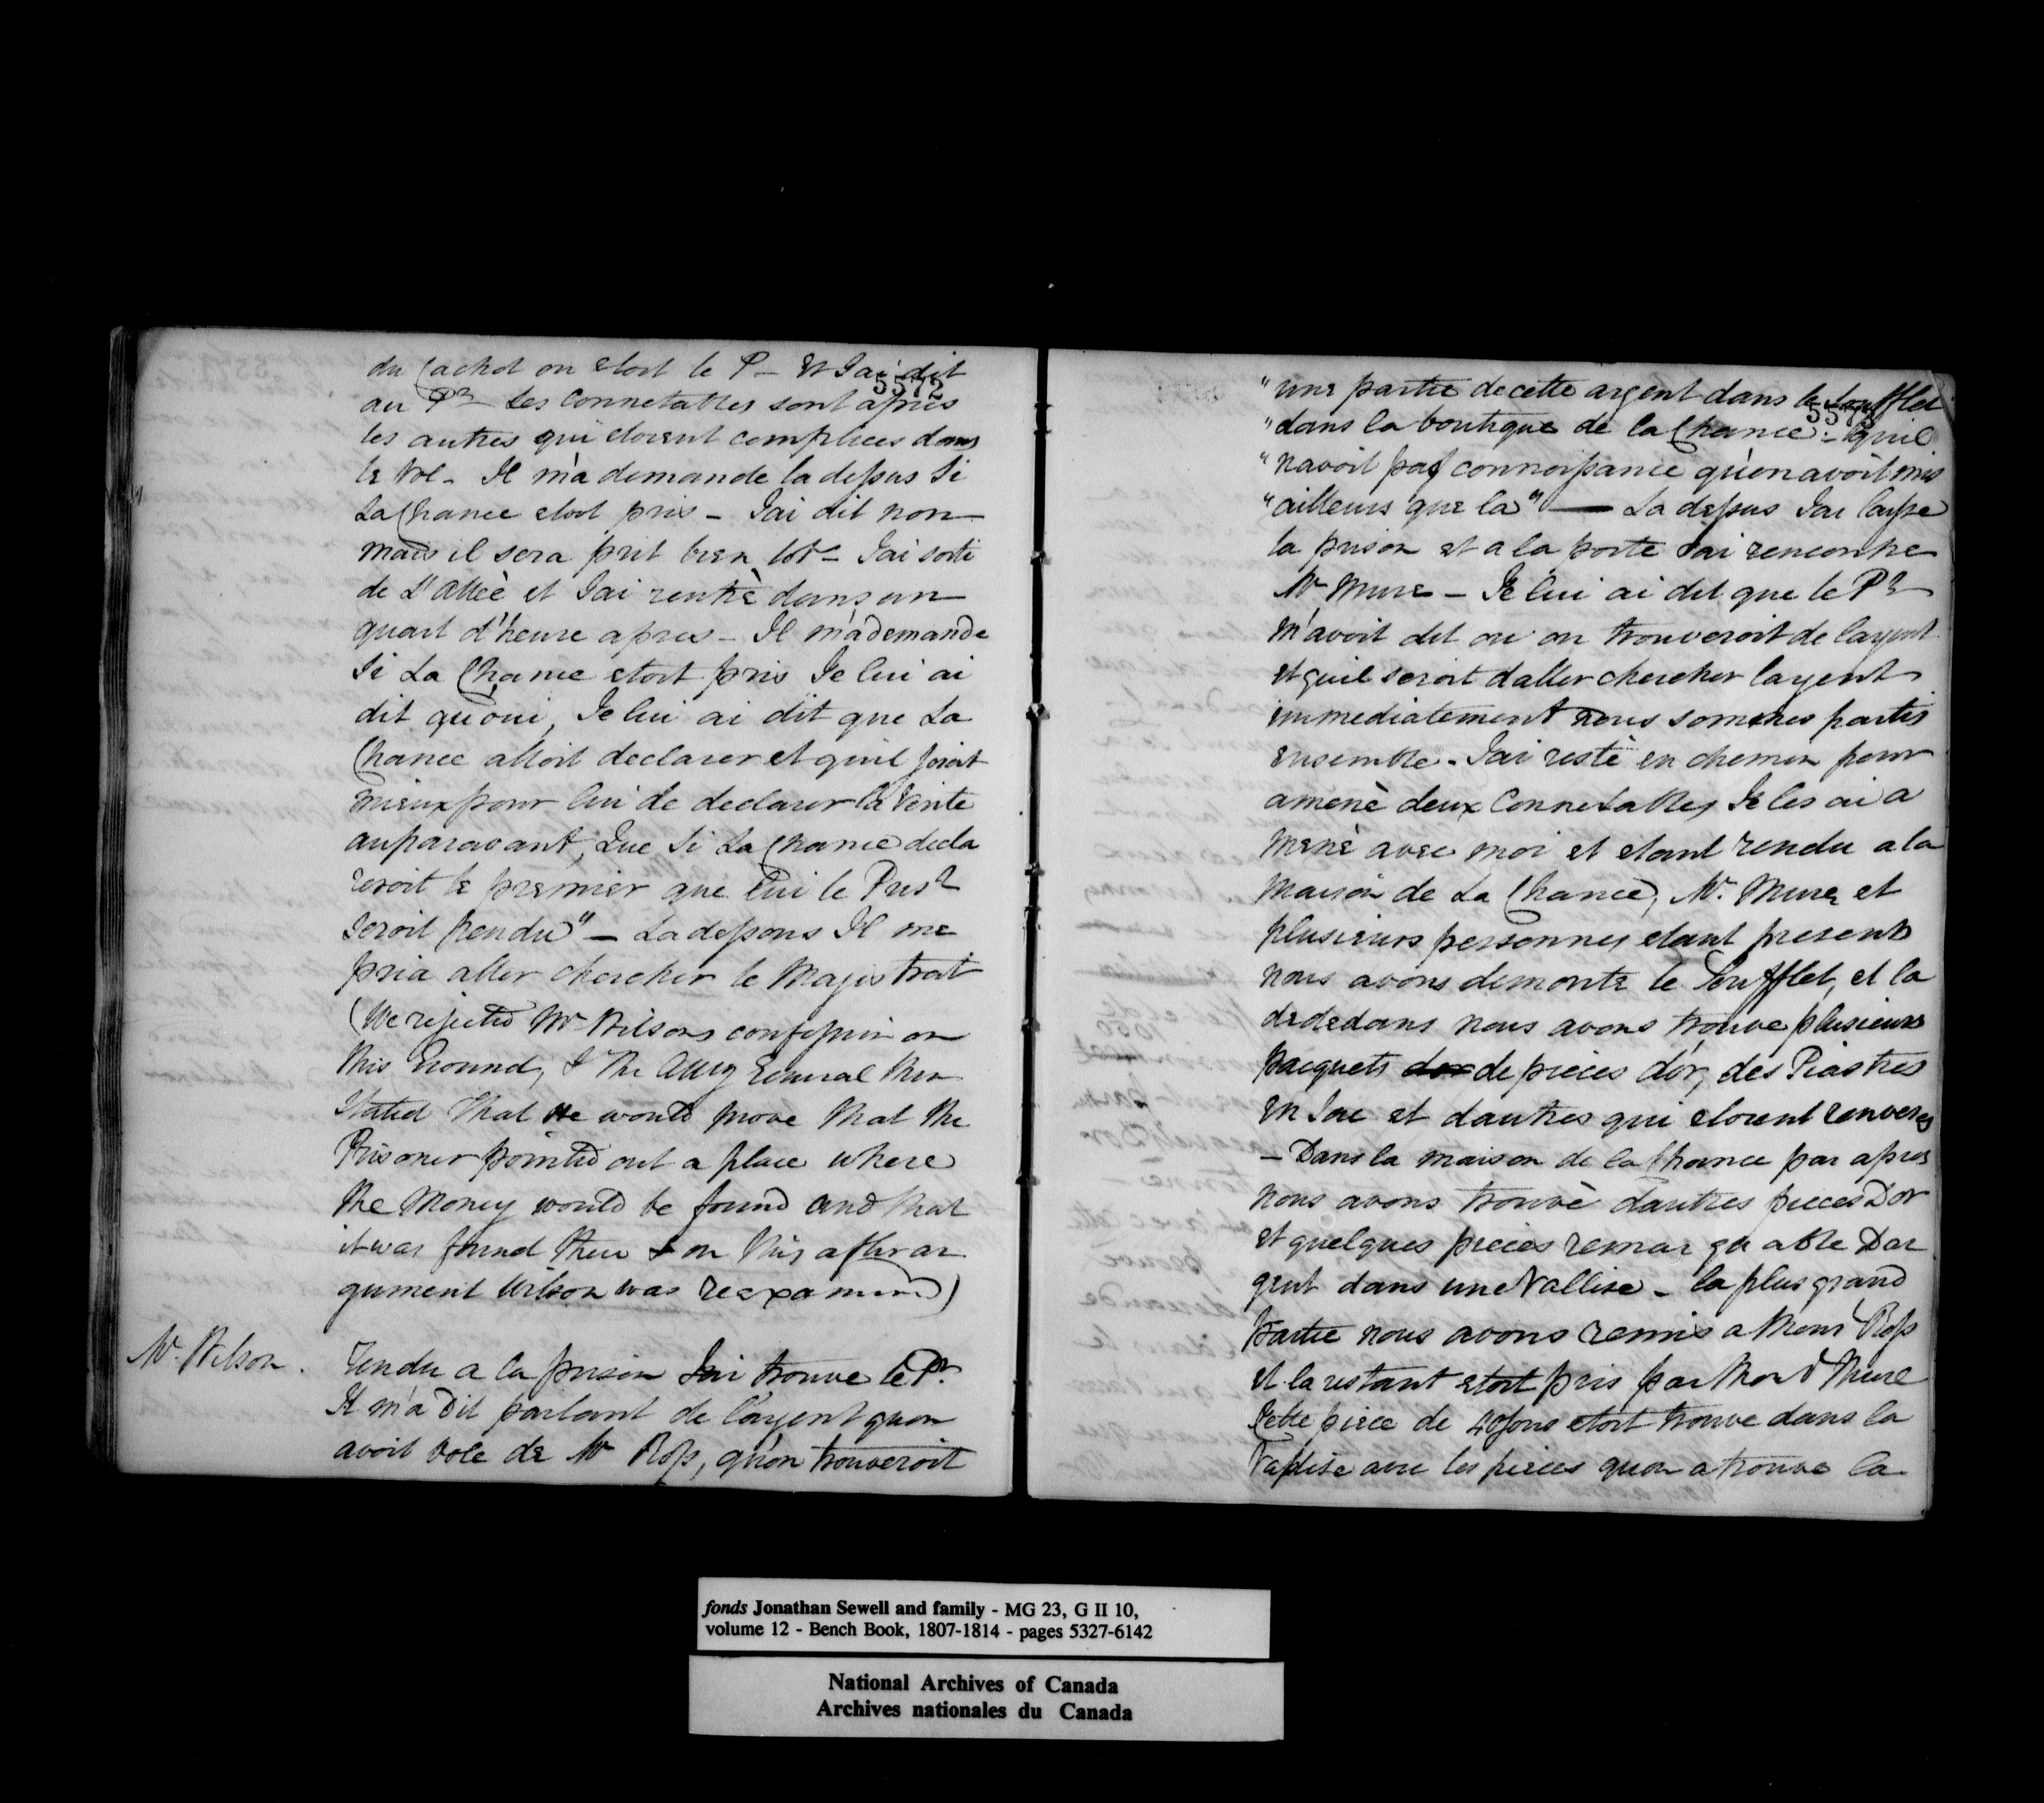 5572
du Cachot ou etoit le P – Et Jai dit
au Pr – Les Connetables sont après
les autres qui etoient complices dans
le Vol – Il m'a demande la dessus Si
La Chance etoit pris – Jai dit non
mais il sera prit bien tot – Jai sorti
de L'allèe et Jai rentrè dans un
quart d'heure apres – Il m'a demande
Si La Chance etoit pris Je lui ai
dit qu'oui, Je lui ai dit que La
Chance alloit declarer et quil feroit
mieux pour lui de declarer la Verite
auparavant, Que Si La Chance decla
reroit le premier que lui le Prisr
seroit pendu" – La dessous Il me
pria aller chercher le Magistrat
(We rejected Mr Wilsons confession on
this Ground, & The Atty General then
stated that He would prove that the
Prisoner pointed out a place where
the Money would be found and that
it was found there & on this after ar
gument Wilson was reexamined)
Mr. Wilson.
rendu a la prison Jai trouve le Pr.
Il m'a Dit parlant de l'argent quon
avoit vole de Mr Ross, qu'on trouveroit
5573
"une partie de cette argent dans le soufflet
"dans la boutique de la Chance – quil
"navoit pas connoissance qu'on avoit mis
"ailleurs que la" — La dessus Jai laisse
la prison et a la porte Jai rencontre
Mr Mure – Je lui ai dit que le Pr
m'avoit dit ou on trouveroit de largent
et quil seroit d'aller chercher largent
immediatement nous sommes partis
ensemble – Jai restè en chemin pour
amenè deux Connetables Je les ai a
menè avec moi et etant rendu a la
maison de La Chance, Mr. Mure et
plusieurs personnes etant present
nous avons demonte le Soufflet, et la
dededans nous avons trouve plusieurs
pacquets dor de pieces d'or, des Piastres
en Sac et dautres qui etoient renverses
– Dans la maison de la Chance par apres
nous avons trouvè dautres pieces Dor
et quelques pieces remarquable Dar
gent dans une Vallise – la plus grand
Partie nous avons remis a Monr Ross
et la restant etoit pris par Monr Mure
Cette piece de 40 sous etoit trouve dans la
Vallise avec les pieces quon a trouve la
fonds Jonathan Sewell and family - MG 23, G II 10,
volume 12 - Bench Book, 1807-1814 - pages 5327-6142
National Archives of Canada
Archives nationales du Canada